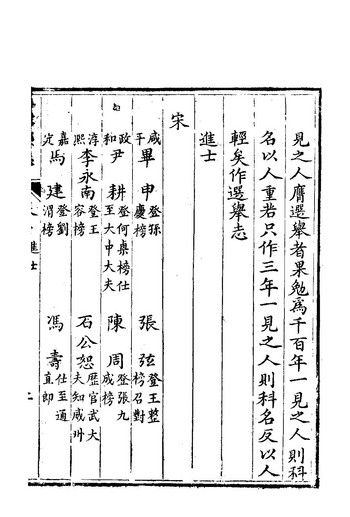 見之人膺選舉者果勉為千百年一見之人則科
名以人重若只作三年一見之人則科名反以人
輕矣作選舉志
進士
宋
咸平畢申登孫慶榜 張弦登王整榜召對
政和尹耕登何㮚榜仕至大中大夫 陳周登張九成榜
淳熙李永南登王容榜 石公恕歷官武大夫知咸州
嘉定馬建登劉渭榜 馮壽仕至通直郎
進士